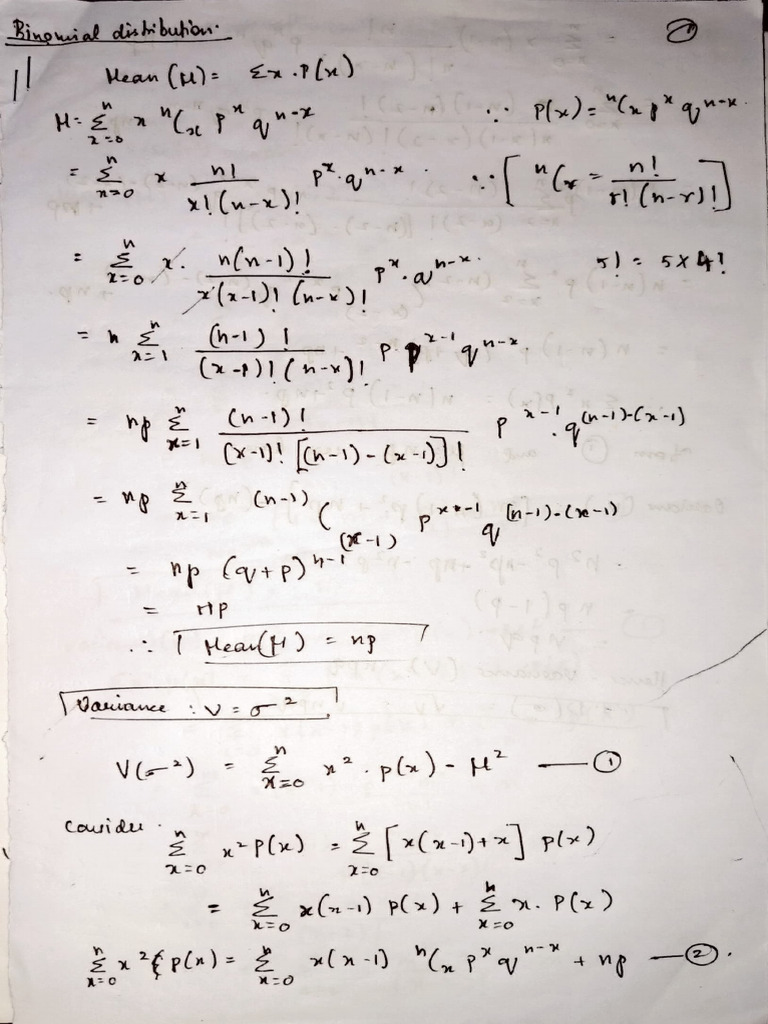 Binomial distribution. ①
Mean (M) = Σx . P(x)
M = Σ_{x=0}^{n} x ⁿC_x p^x q^{n-x} ∵ P(x) = ⁿC_x p^x q^{n-x}.
= Σ_{x=0}^{n} x n!/(x!(n-x)!) p^x . q^{n-x} . ∵ [ⁿC_r = n!/(r!(n-r)!)]
= Σ_{x=0}^{n} x . n(n-1)!/(x(x-1)!(n-x)!) p^x . q^{n-x}. 5! = 5 x 4!
= n Σ_{x=1}^{n} (n-1)!/((x-1)!(n-x)!) p . p^{x-1} q^{n-x}.
= np Σ_{x=1}^{n} (n-1)!/((x-1)![(n-1)-(x-1)]!) p^{x-1} . q^{(n-1)-(x-1)}
= np Σ_{x=1}^{n} ^{(n-1)}C_{(x-1)} p^{x-1} q^{(n-1)-(x-1)}
= np (q+p)^{n-1}
= np
∴ Mean(M) = np
Variance : V = σ²
V(σ²) = Σ_{x=0}^{n} x² . p(x) - M² — ①
Consider . Σ_{x=0}^{n} x² P(x) = Σ_{x=0}^{n} [x(x-1)+x] p(x)
= Σ_{x=0}^{n} x(x-1) P(x) + Σ_{x=0}^{n} x . P(x)
Σ_{x=0}^{n} x² P(x) = Σ_{x=0}^{n} x(x-1) ⁿC_x p^x q^{n-x} + np — ② .